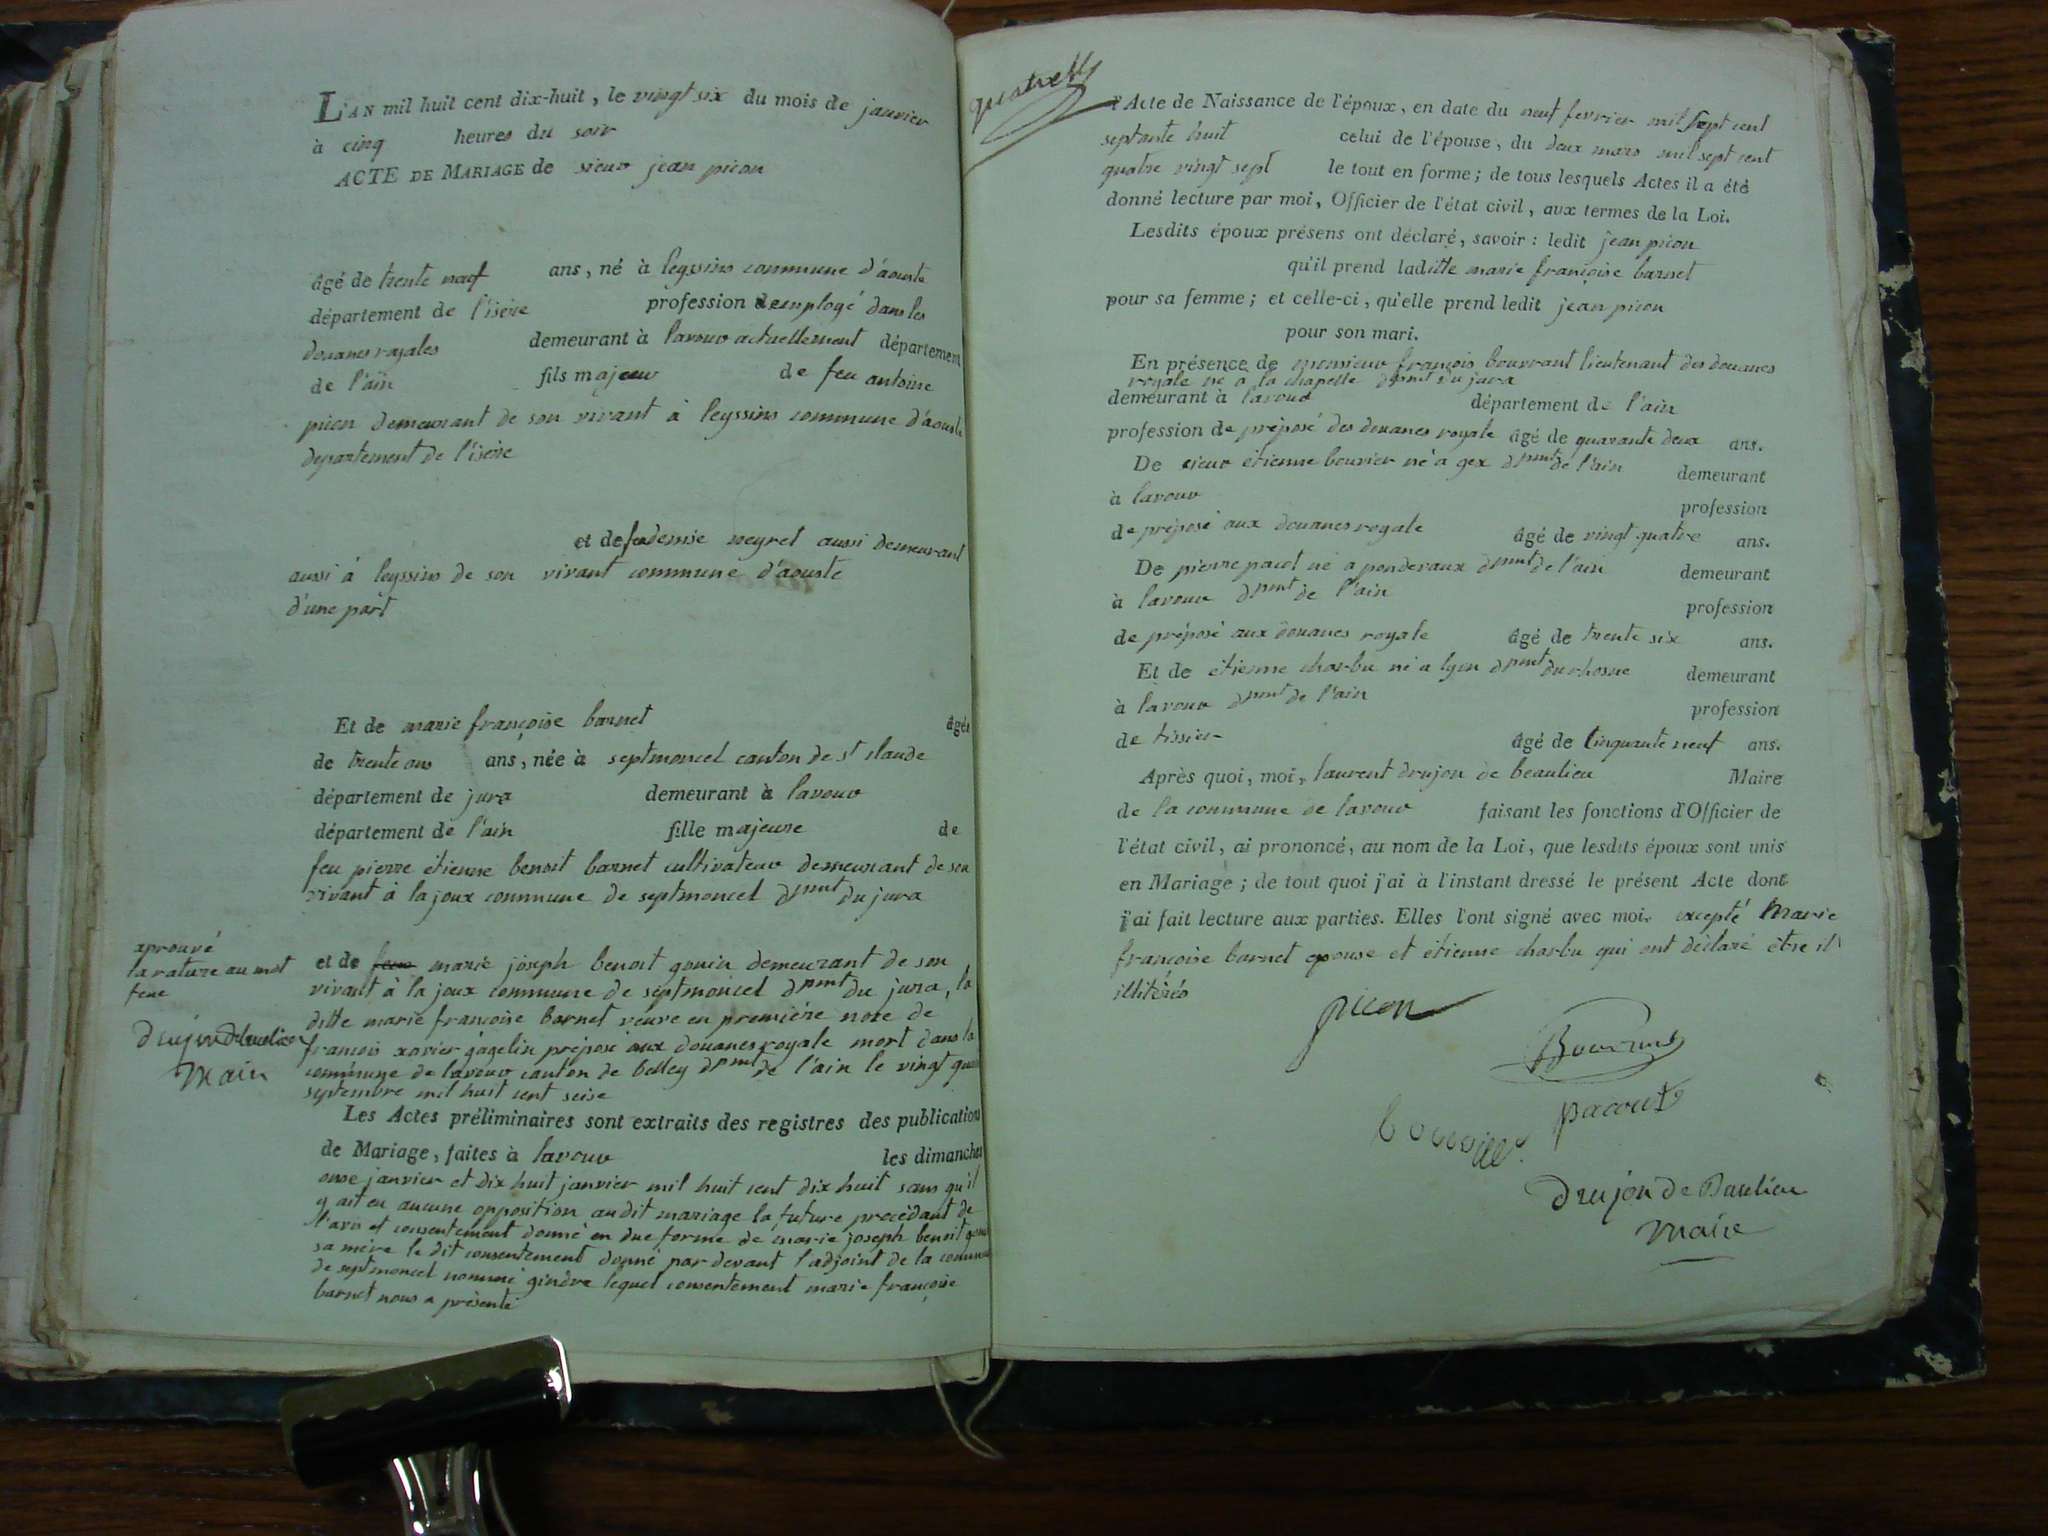 L'AN mil huit cent dix-huit, le vingt six du mois de janvier
à cinq heures du soir
ACTE DE MARIAGE de sieur jean picon
âgé de trente neuf ans, né à leyssins commune d'aouste
département de l'isère profession d'employé dans les
douanes royales demeurant à lavour actuellement département
de l'ain fils majeur de feu antoine
picon demeurant de son vivant à leyssins commune d'aouste
departement de l'isère
et de feu denise meyret aussi demeurant
aussi à leyssins de son vivant commune d'aouste
d'une part
Et de marie françoise barnet âgée
de trente ans ans, née à septmoncel canton de st claude
département de jura demeurant à lavour
département de l'ain fille majeure de
feu pierre étienne benoit barnet cultivateur demeurant de son
vivant à la joux commune de septmoncel dpmt du jura
et de feue marie joseph benoit gouin demeurant de son
vivant à la joux commune de septmoncel dpmt du jura, la
ditte marie françoise barnet veuve en première noce de
françois xavier gagelin préposé aux douanes royale mort dans la
commune de lavour canton de belley dpmt de l'ain le vingt
septembre mil huit cent seise
aprouvé
la rature au mot
feue
Drujon De beaulieu
Maire
Les Actes préliminaires sont extraits des registres des publications
de Mariage, faites à lavour les dimanches
onse janvier et dix huit janvier mil huit cent dix huit sans qu'il
y ait eu aucune opposition audit mariage la future precédant de
l'avis et consentement donné en due forme de marie joseph benoit gouin
sa mère le dit consentement donné par devant l'adjoint de la commune
de septmoncel nommé gindre lequel consentement marie françoise
barnet nous a présenté
quatre
l'Acte de Naissance de l'époux, en date du neuf fevrier mil sept cent
septante huit celui de l'épouse, du deux mars mil sept cent
quatre vingt sept le tout en forme; de tous lesquels Actes il a été
donné lecture par moi, Officier de l'état civil, aux termes de la Loi.
Lesdits époux présens ont déclaré, savoir: ledit jean picon
qu'il prend laditte marie françoise barnet
pour sa femme; et celle-ci, qu'elle prend ledit jean picon
pour son mari.
En présence de monsieur françois bourrant lieutenant des douanes
royale né a la chapelle dpmt du jura
demeurant à lavour département de l'ain
profession de préposé des douanes royale âgé de quarante deux ans.
De sieur étienne bouvier né a gex dpmt de l'ain demeurant
à lavour
profession
de préposé aux douanes royale âgé de vingt quatre ans.
De pierre pacot né a pondevaux dpmt de l'ain demeurant
à lavour dpmt de l'ain
profession
de préposé aux douanes royale âgé de trente six ans.
Et de étienne charbu né a lyon dpmt du rhosne demeurant
à lavour dpmt de l'ain
profession
de tissier âgé de Cinquante neuf ans.
Après quoi, moi, laurent drujon de beaulieu Maire
de la commune de lavour faisant les fonctions d'Officier de
l'état civil, ai prononcé, au nom de la Loi, que lesdits époux sont unis
en Mariage; de tout quoi j'ai à l'instant dressé le présent Acte dont
j'ai fait lecture aux parties. Elles l'ont signé avec moi. excepté Marie
françoise barnet epouse et étienne charbu qui ont déclaré être il
illitérés
picon
Bourrant
pacout
Drujon De Baulieu
Maire